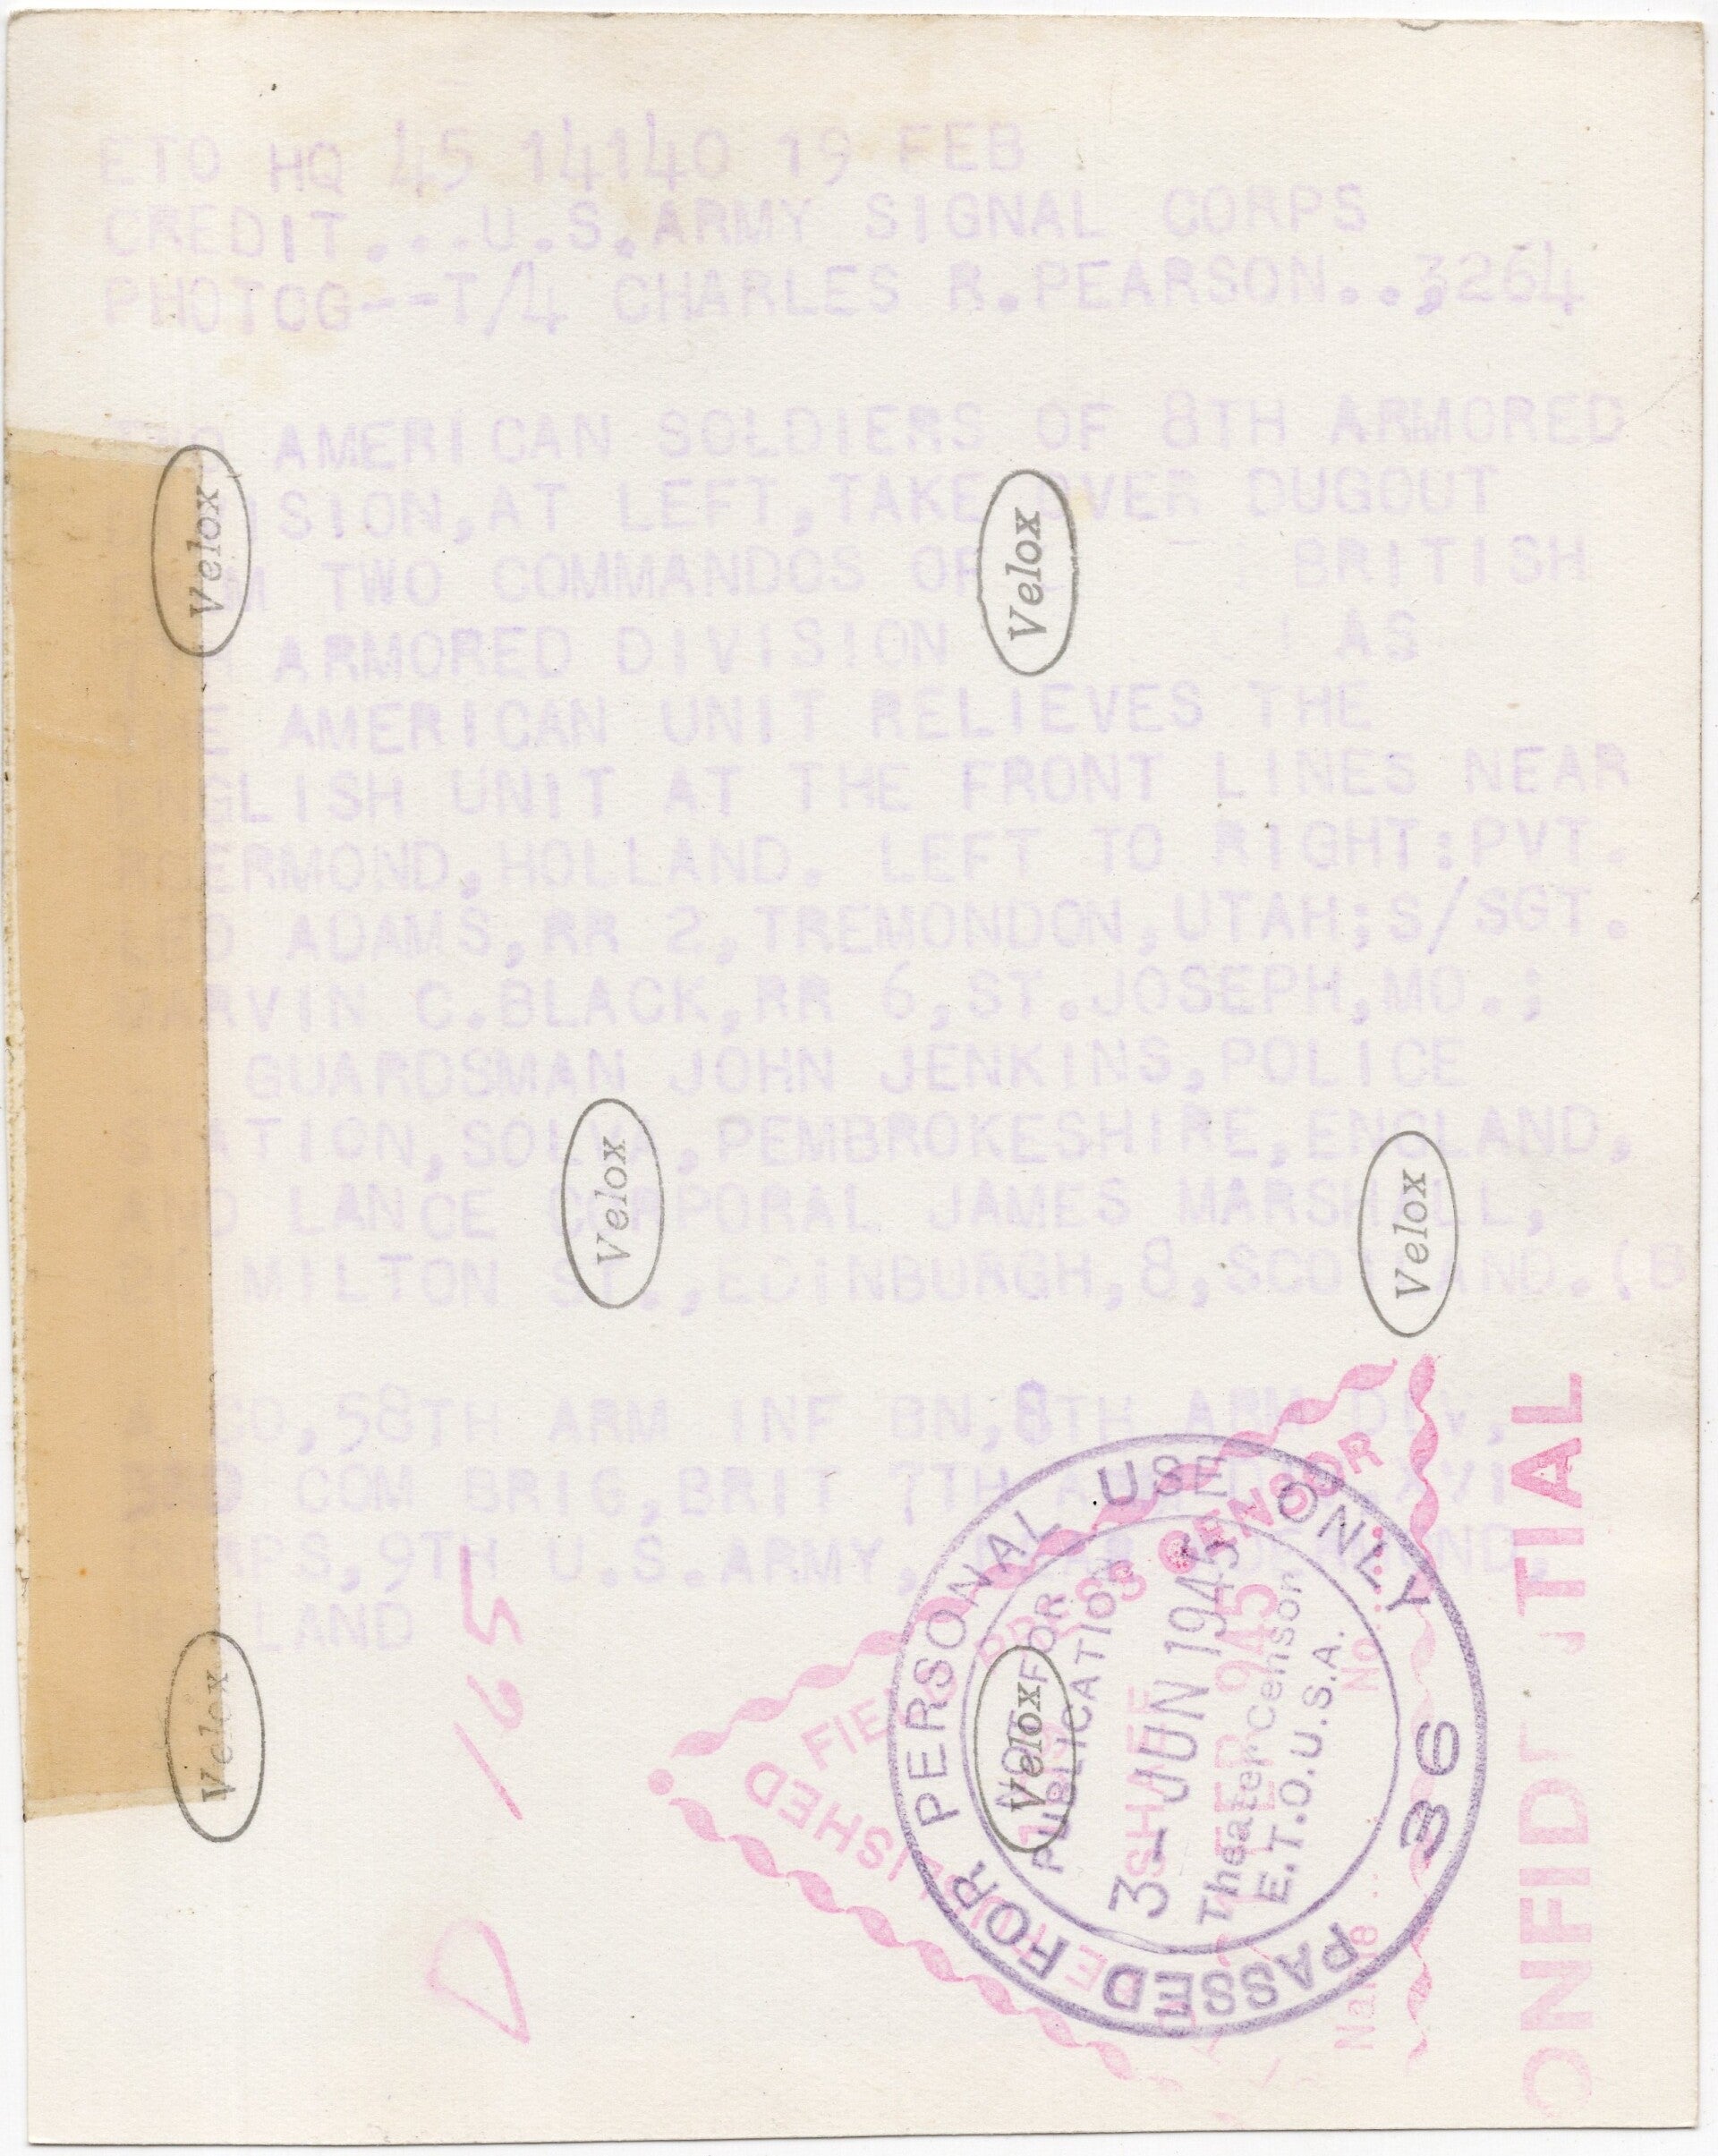 ETO HQ 45 14140 19 FEB
CREDIT...U.S.ARMY SIGNAL CORPS
PHOTOG--T/4 CHARLES R.PEARSON..,3264
TWO AMERICAN SOLDIERS OF 8TH ARMORED
DIVISION,AT LEFT,TAKE OVER DUGOUT
FROM TWO COMMANDOS OF BRITISH
7TH ARMORED DIVISION AS
THE AMERICAN UNIT RELIEVES THE
ENGLISH UNIT AT THE FRONT LINES NEAR
ROERMOND,HOLLAND. LEFT TO RIGHT:PVT.
LEO ADAMS,RR 2,TREMONDON,UTAH;S/SGT.
C.BLACK,RR 6,ST.JOSEPH,MO.;
GUARDSMAN JOHN JENKINS,POLICE
STATION,SOLVA,PEMBROKESHIRE,ENGLAND,
AND LANCE CORPORAL JAMES MARSHALL,
MILTON ST.,EDINBURGH,8,SCOTLAND.(B
CO,58TH ARM INF BN,8TH ARM DIV,
COM BRIG,BRIT 7TH XVI
CORPS,9TH U.S.ARMY,
HOLLAND
Velox
Velox
Velox
Velox
Velox
Velox
591
D
PASSED FOR PERSONAL USE ONLY 36
NOT FOR
PUBLICATION
3- JUN 1945
Theater Censor
E.T.O.U.S.A.
FIELD PRESS CENSOR
SHAEF
FEB 945
No.
Name
ONFID TIAL